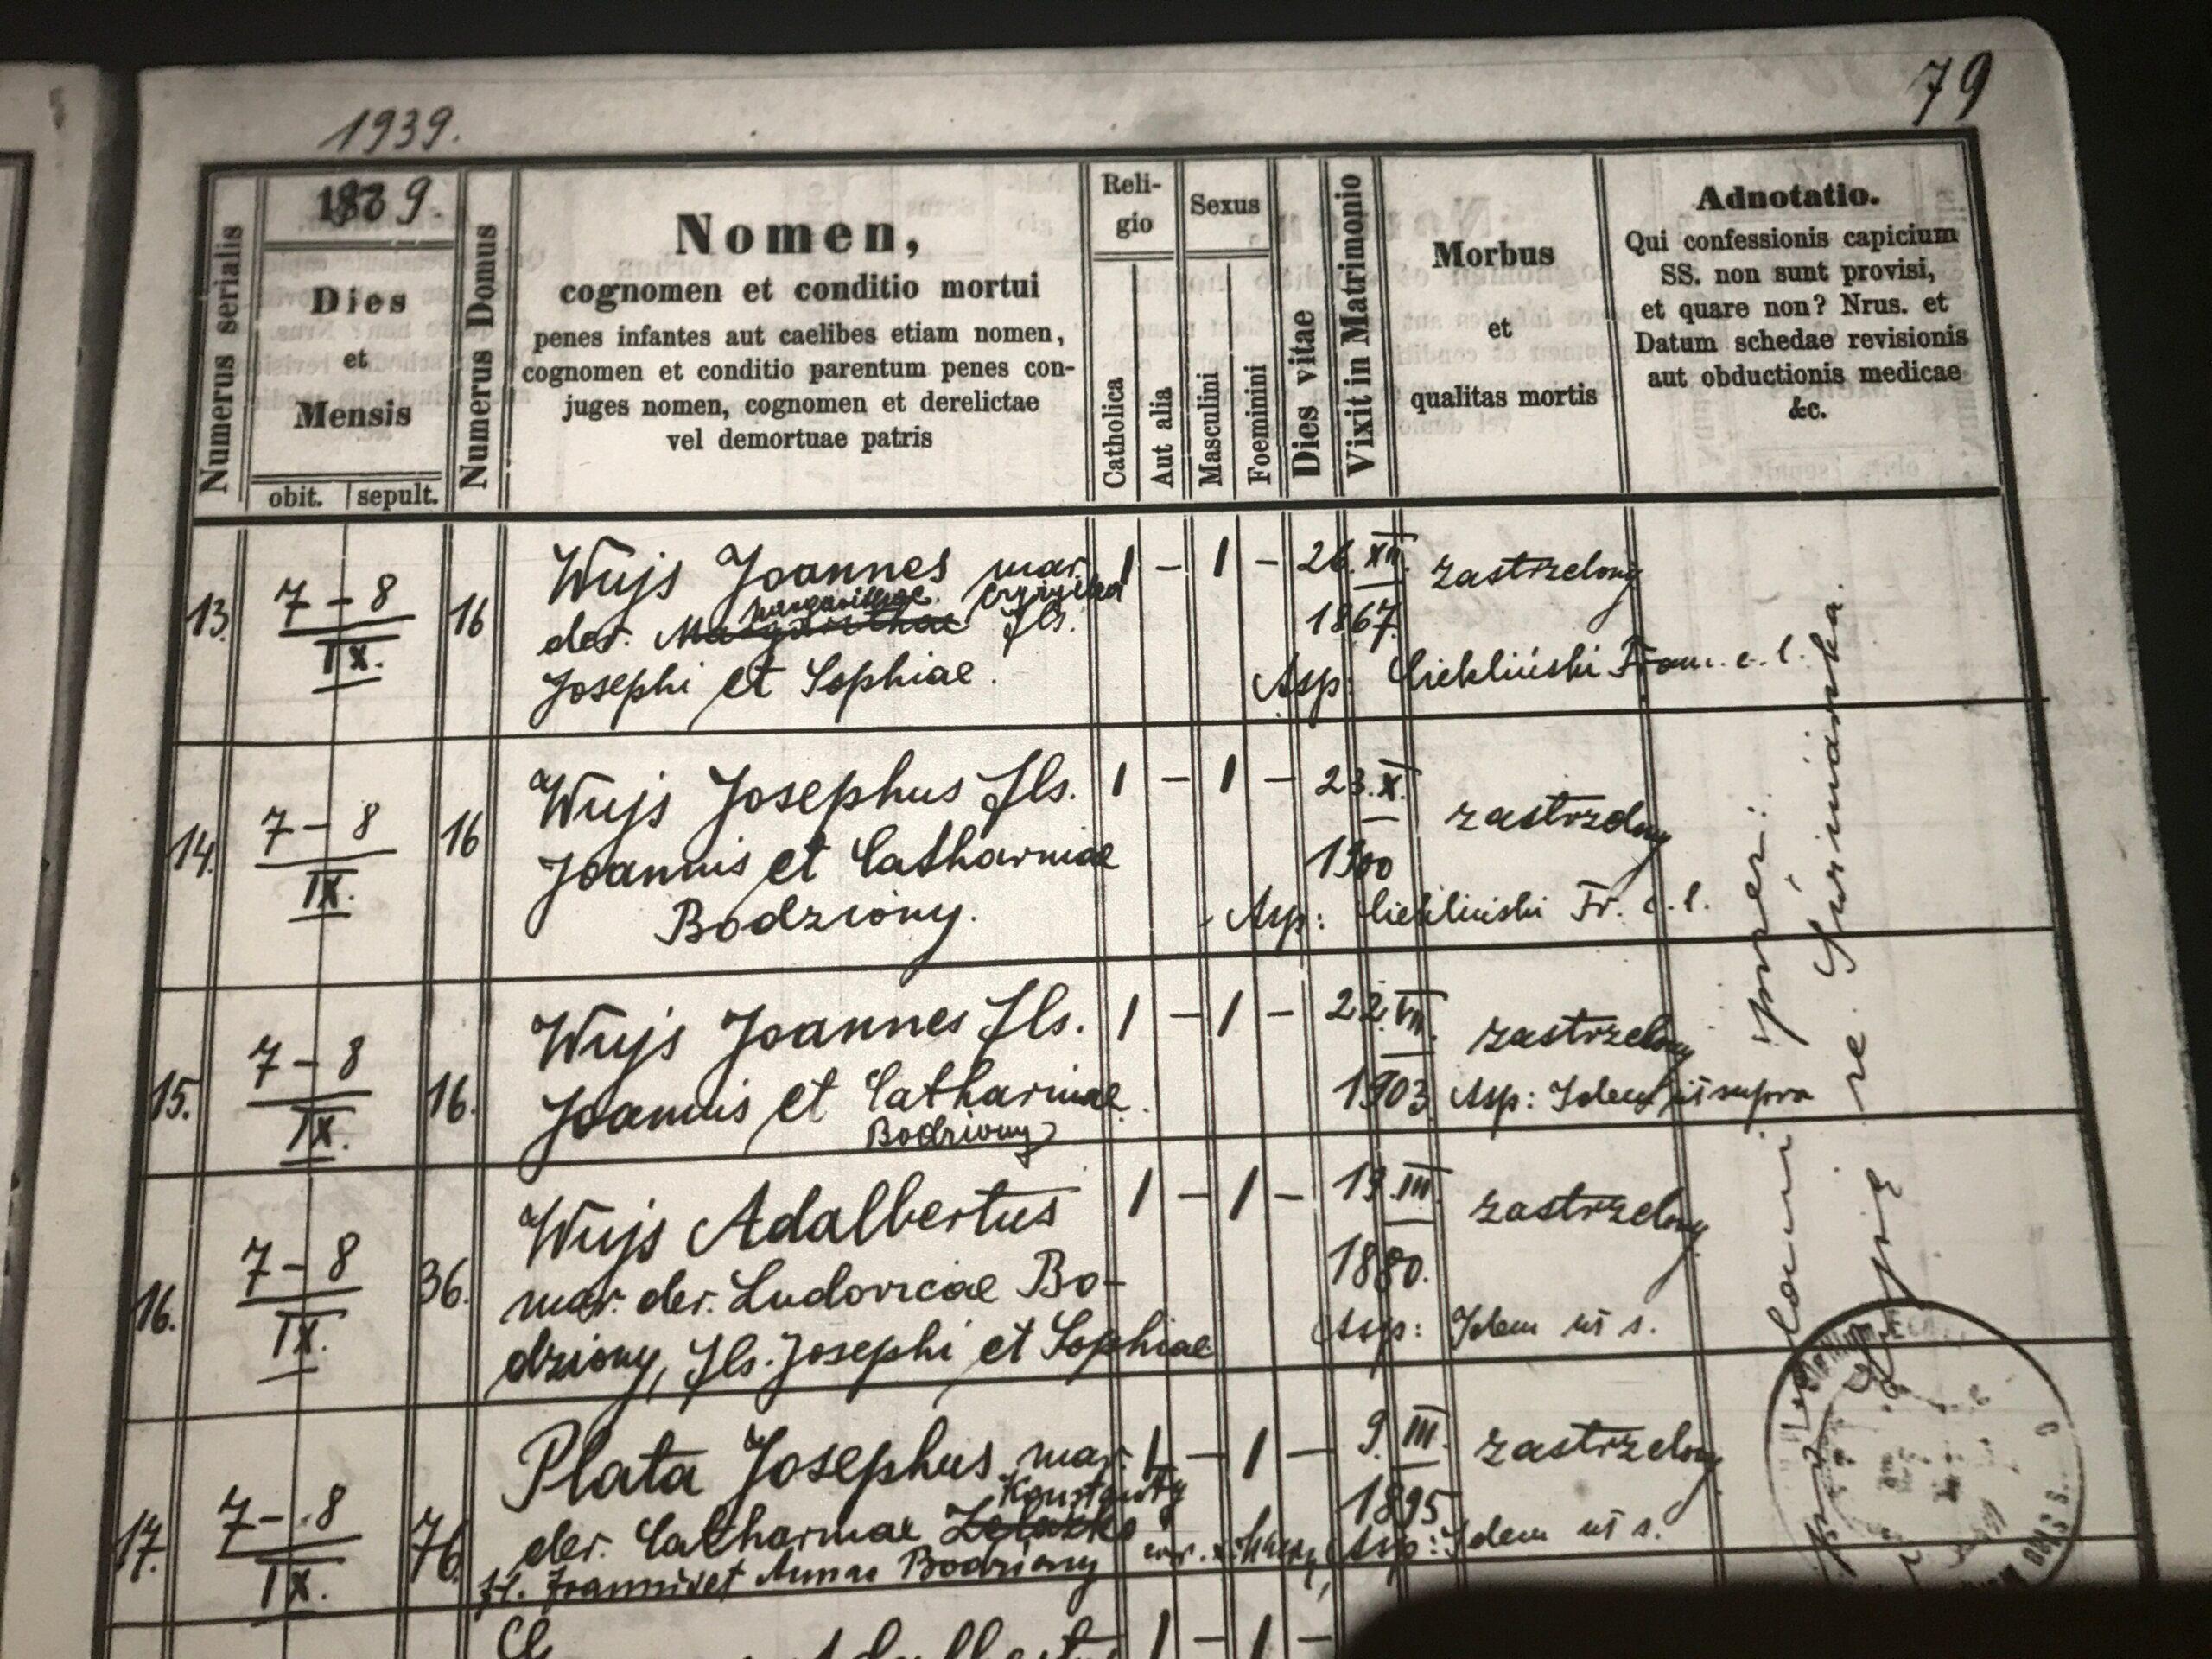 79
1939.
Numerus serialis
9.
Dies
et
Mensis
obit. sepult.
Numerus Domus
Nomen,
cognomen et conditio mortui
penes infantes aut caelibes etiam nomen,
cognomen et conditio parentum penes con-
juges nomen, cognomen et derelictae
vel demortuae patris
Reli-
gio
Catholica
Aut alia
Sexus
Masculini
Foeminini
Dies vitae
Vixit in Matrimonio
Morbus
et
qualitas mortis
Adnotatio.
Qui confessionis capicium
SS. non sunt provisi,
et quare non? Nrus. et
Datum schedae revisionis
aut obductionis medicae
&c.
13. 7 - 8 16 Wujs Joannes mar. 1 - 1 - 26. XII. zastrzelony
IX. der. Margarithae fls. 1867.
Josephi et Sophiae. Asp: Ciekliński Franc. c. l.
14. 7 - 8 16 Wujs Josephus fls. 1 - 1 - 23. X. zastrzelony
IX. Joannis et Catharinae 1900
Bodziony. Asp: Ciekliński Fr. c. l.
15. 7 - 8 16. Wujs Joannes fls. 1 - 1 - 22. VII. zastrzelony
IX. Joannis et Catharinae 1903 Asp: Idem ut supra
Bodziony
16. 7 - 8 36. Wujs Adalbertus 1 - 1 - 19. III. zastrzelony
IX. mar. der. Ludovicae Bo- 1880.
dziony, fls. Josephi et Sophiae Asp: Idem ut s.
17. 7 - 8 76. Plata Josephus mar. 1 - 1 - 9. III. zastrzelony
Konstanty
IX. der. Catharinae 1895
fl. Joannis et Annae Bodziony Asp: Idem ut s.
1 - 1 -